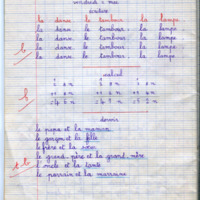 vendredi 2 mai
écriture
la danse le tambour la lampe
la danse le tambour la lampe
la danse le tambour la lampe
la danse le tambour la lampe
la danse le tambour la lampe
calcul
devoir
le papa et la maman
le garçon et la fille
le frère et la sœur
le grand-père et la grand-mère
l'oncle et la tante
le parrain et la marraine